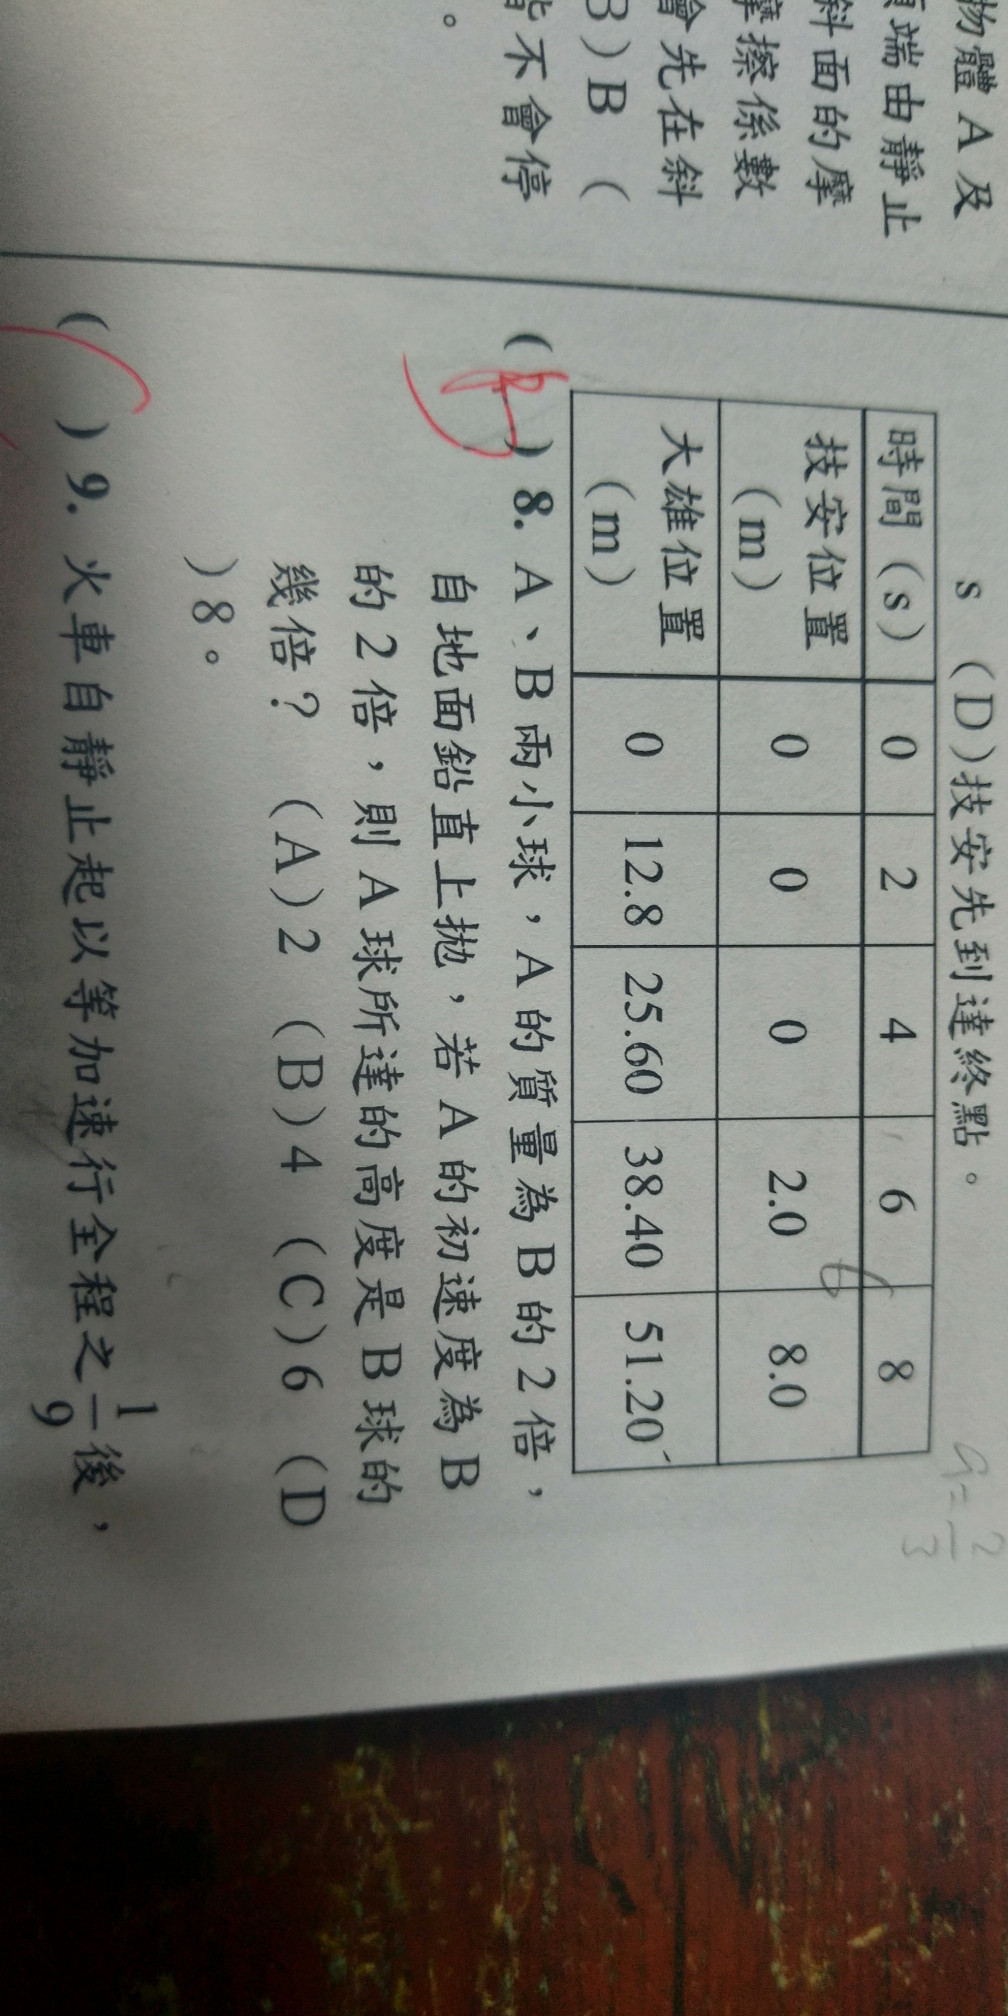 物體A及
端由靜止
斜面的摩
摩擦係數
會先在斜
B)B (
不會停
。
s (D)技安先到達終點。
a=2/3
時間(s) 0 2 4 6 8
技安位置(m) 0 0 0 2.0 8.0
6
大雄位置(m) 0 12.8 25.60 38.40 51.20
(B)8. A、B兩小球,A的質量為B的2倍,
自地面鉛直上拋,若A的初速度為B
的2倍,則A球所達的高度是B球的
幾倍? (A)2 (B)4 (C)6 (D
)8。
( )9. 火車自靜止起以等加速行全程之1/9後,